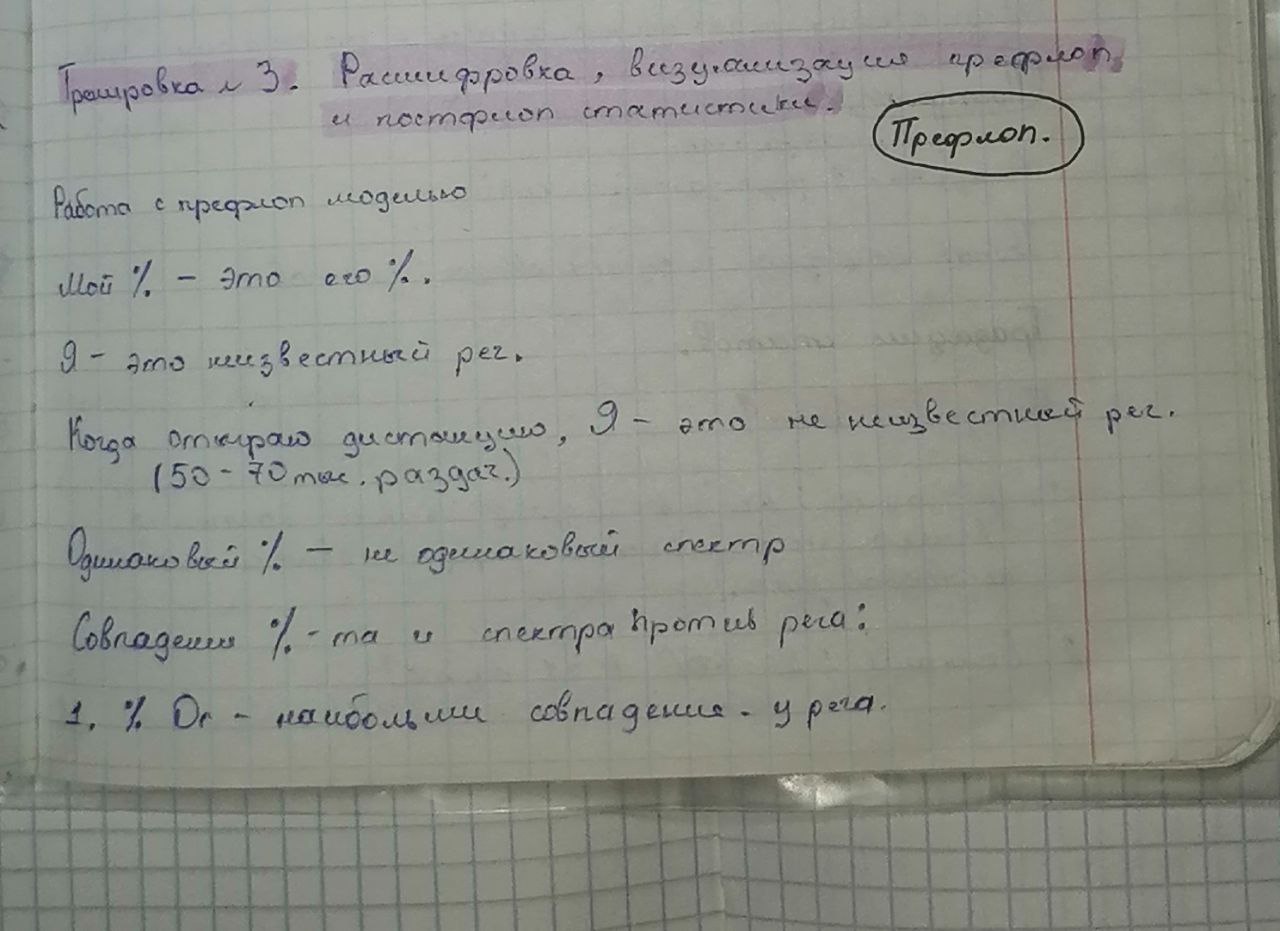 Тренировка №3. Расшифровка, визуализация префлоп
и постфлоп статистики.
Префлоп.
Работа с префлоп моделью
Мой % - это его %.
Я - это неизвестный рег.
Когда отыграю дистанцию, Я - это не неизвестный рег.
(50 - 70 тыс. раздач.)
Одинаковый % - не одинаковый спектр
Совпадения %-та и спектра против рега:
1. % Or - наибольшии совпадения - у рега.